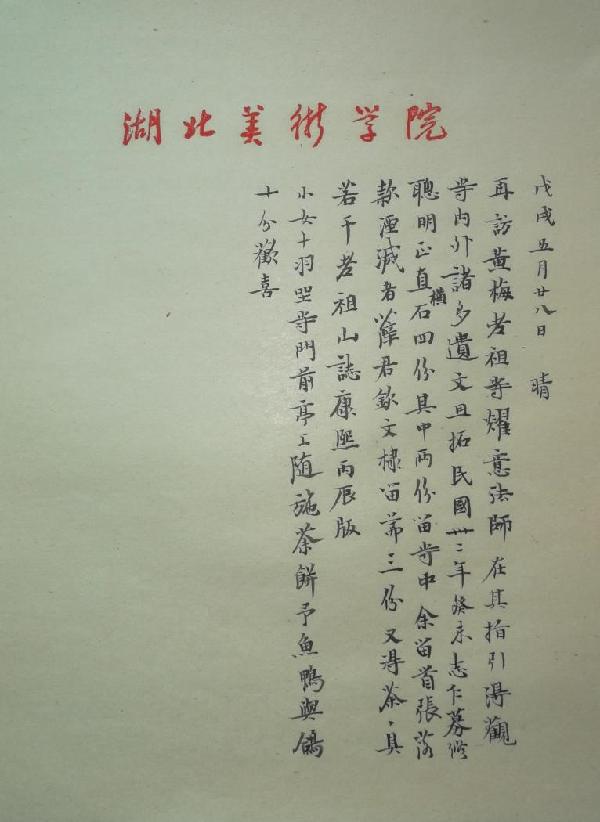 湖北美術学院
戊戌五月廿八日 晴
再訪黃梅老祖寺燿意法師在其指引得觀
寺内外諸多遺文且拓民國卅二年癸未志仁募修
聰明正直橫石四份具中兩份留寺中余留首張落
款湮滅者薛君欽文棣留第三份又得茶、具
若干老祖山誌康熙丙辰版
小女十羽坐寺門前亭上随施茶餅予魚鴨與鴿
十分歡喜